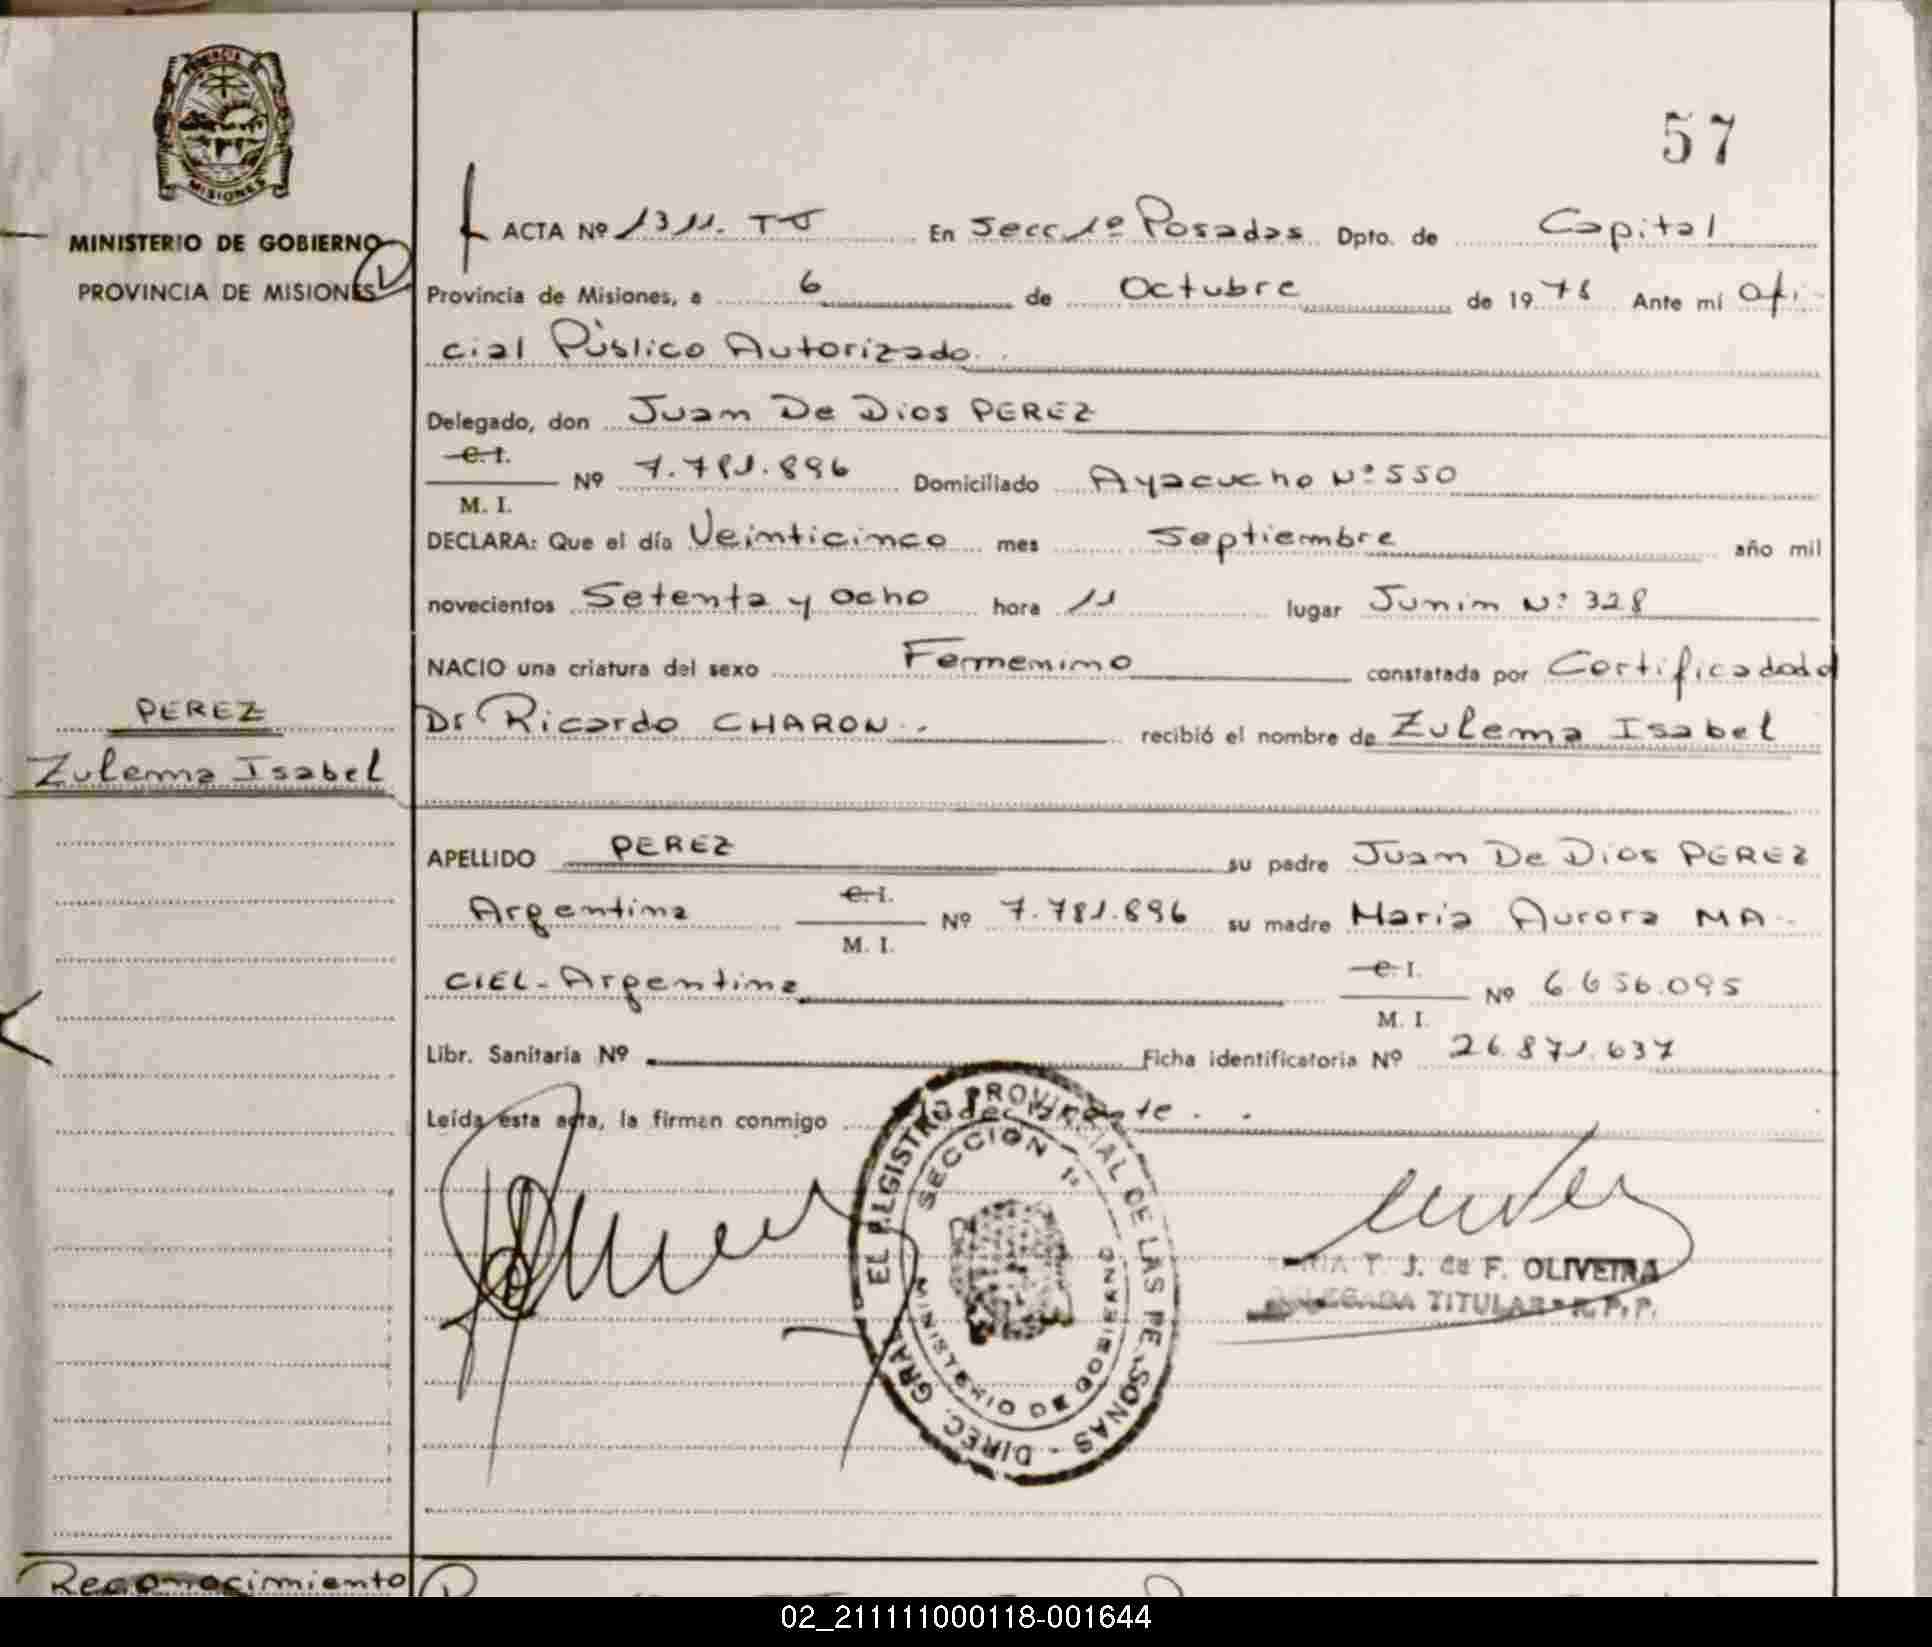 PROVINCIA DE
MISIONES
MINISTERIO DE GOBIERNO
PROVINCIA DE MISIONES
57
ACTA Nº 1311. TJ En Secc 1º Posadas Dpto. de Capital
Provincia de Misiones, a 6 de Octubre de 1978 Ante mí Ofi-
cial Público Autorizado.
Delegado, don Juan De Dios PEREZ
C. I.
Nº 7.781.896 Domiciliado Ayacucho Nº 550
M. I.
DECLARA: Que el día Veinticinco mes Septiembre año mil
novecientos Setenta y ocho hora 11 lugar Junin Nº 328
NACIO una criatura del sexo Femenino constatada por Certificado d
Dr Ricardo CHARON.. recibió el nombre de Zulema Isabel
PEREZ
Zulema Isabel
APELLIDO PEREZ su padre Juan De Dios PEREZ
Argentina C. I. Nº 7.781.896 su madre Maria Aurora MA-
M. I.
CIEL - Argentina C. I. Nº 6.656.095
M. I.
Libr. Sanitaria Nº Ficha identificatoria Nº 26.871.637
Leída esta acta, la firman conmigo el declarante . .
DIREC. GRAL. DEL REGISTRO PROVINCIAL DE LAS PERSONAS -
SECCION 1ª
MINISTERIO DE GOBIERNO
T. J. de F. OLIVEIRA
DELEGADA TITULAR - R.P.P.
Reconocimiento
02_211111000118-001644